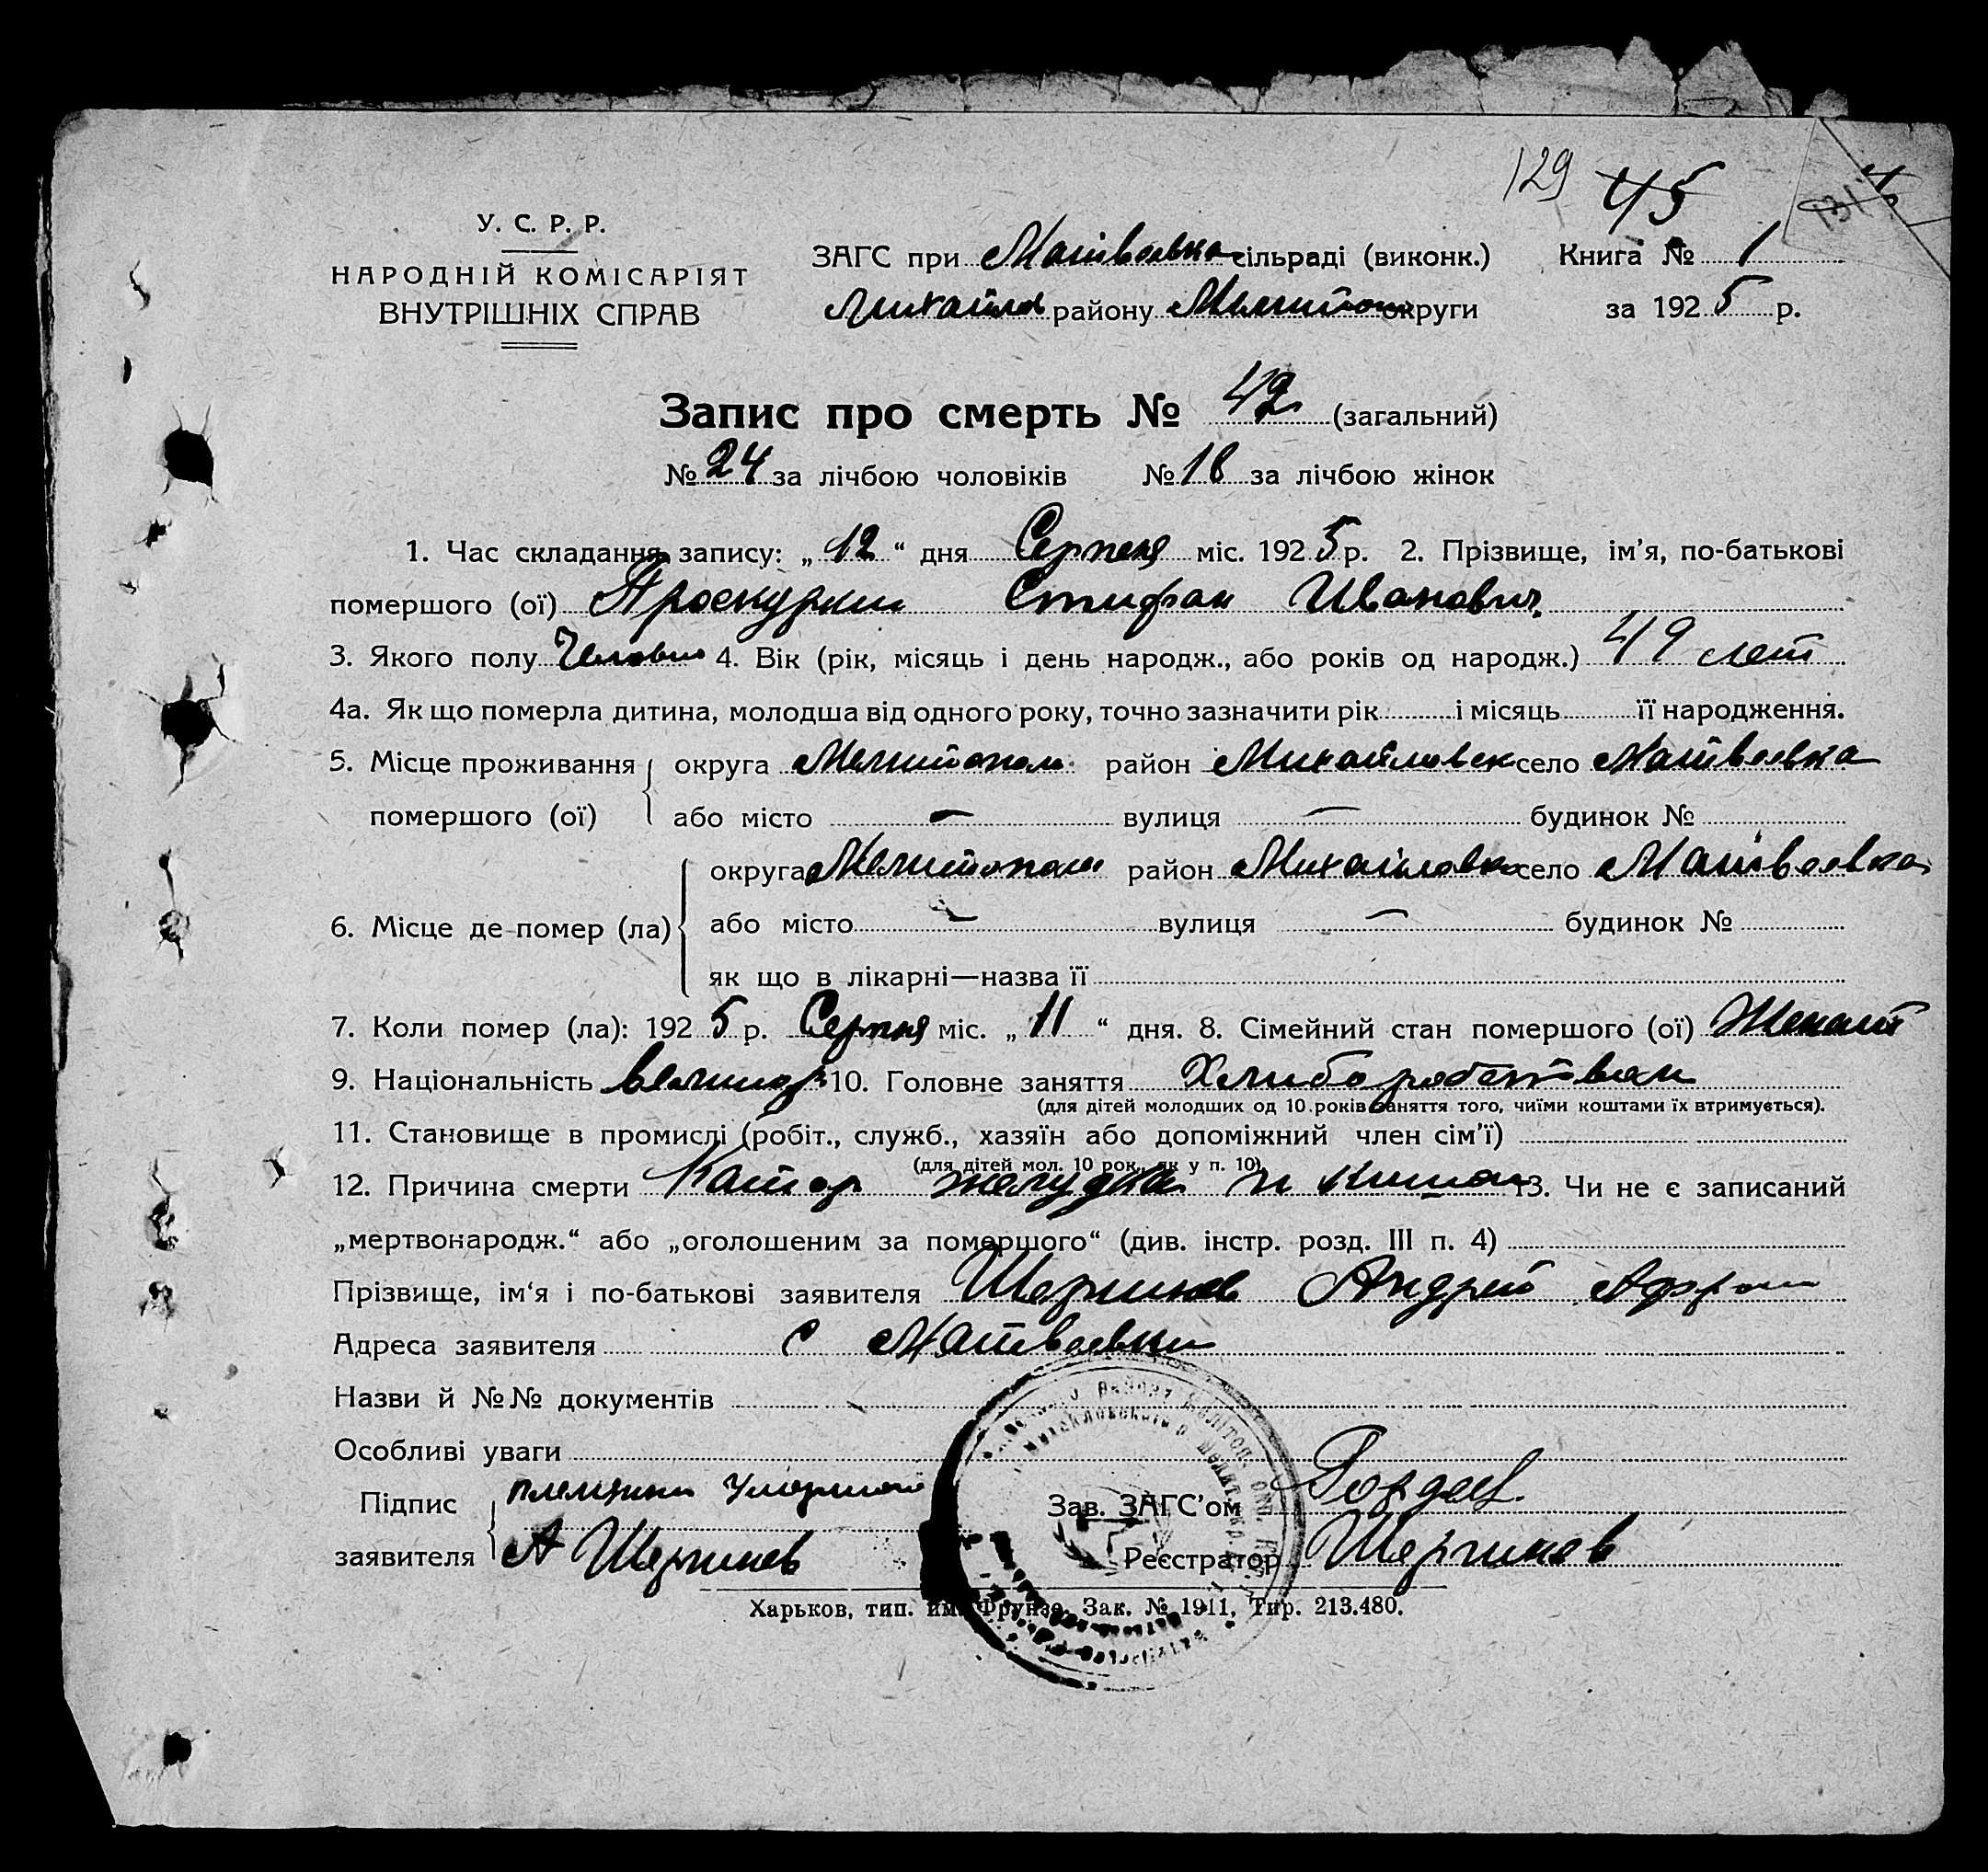 129 45
У. С. Р. Р.
НАРОДНІЙ КОМІСАРІЯТ
ВНУТРІШНІХ СПРАВ
ЗАГС при Матвеевка сільраді (виконк.) Книга № 1
Михайлов району Мелитоп округи за 1925 р.
Запис про смерть № 42 (загальний)
№ 24 за лічбою чоловіків № 18 за лічбою жінок
1. Час складання запису: „12“ дня Серпеня міс. 1925 р. 2. Прізвище, ім’я, по-батькові
помершого (ої) Проскурин Стифан Иванович
3. Якого полу 4. Вік (рік, місяць і день народж., або років од народж.) 49 лет
4а. Як що померла дитина, молодша від одного року, точно зазначити рік і місяць її народження.
5. Місце проживання помершого (ої) округа Мелитополь район Михайловск село Матвеевка
або місто — вулиця — будинок №
6. Місце де помер (ла) округа Мелитополь район Михайловка село Матвеевка
або місто — вулиця — будинок №
як що в лікарні—назва її
7. Коли помер (ла): 1925 р. Серпня міс. „11“ дня. 8. Сімейний стан помершого (ої) Женат
9. Національність великор 10. Головне заняття
(для дітей молодших од 10 років заняття того, чиїми коштами їх втримується).
11. Становище в промислі (робіт., служб., хазяїн або допоміжний член сім’ї)
(для дітей мол. 10 рок., як у п. 10)
12. Причина смерти Катар желудка и кишок 13. Чи не є записаний
„мертвонародж.“ або „оголошеним за помершого“ (див. інстр. розд. III п. 4)
Прізвище, ім‘я і по-батькові заявителя Андрей
Адреса заявителя с Матвеевки
Назви й №№ документів
Особливі уваги
Підпис племянник Умершого Зав. ЗАГС’ом Гордеев
заявителя А Реєстратор
Харьков, тип. им. Фрунзе. Зак. № 1911, Тир. 213.480.